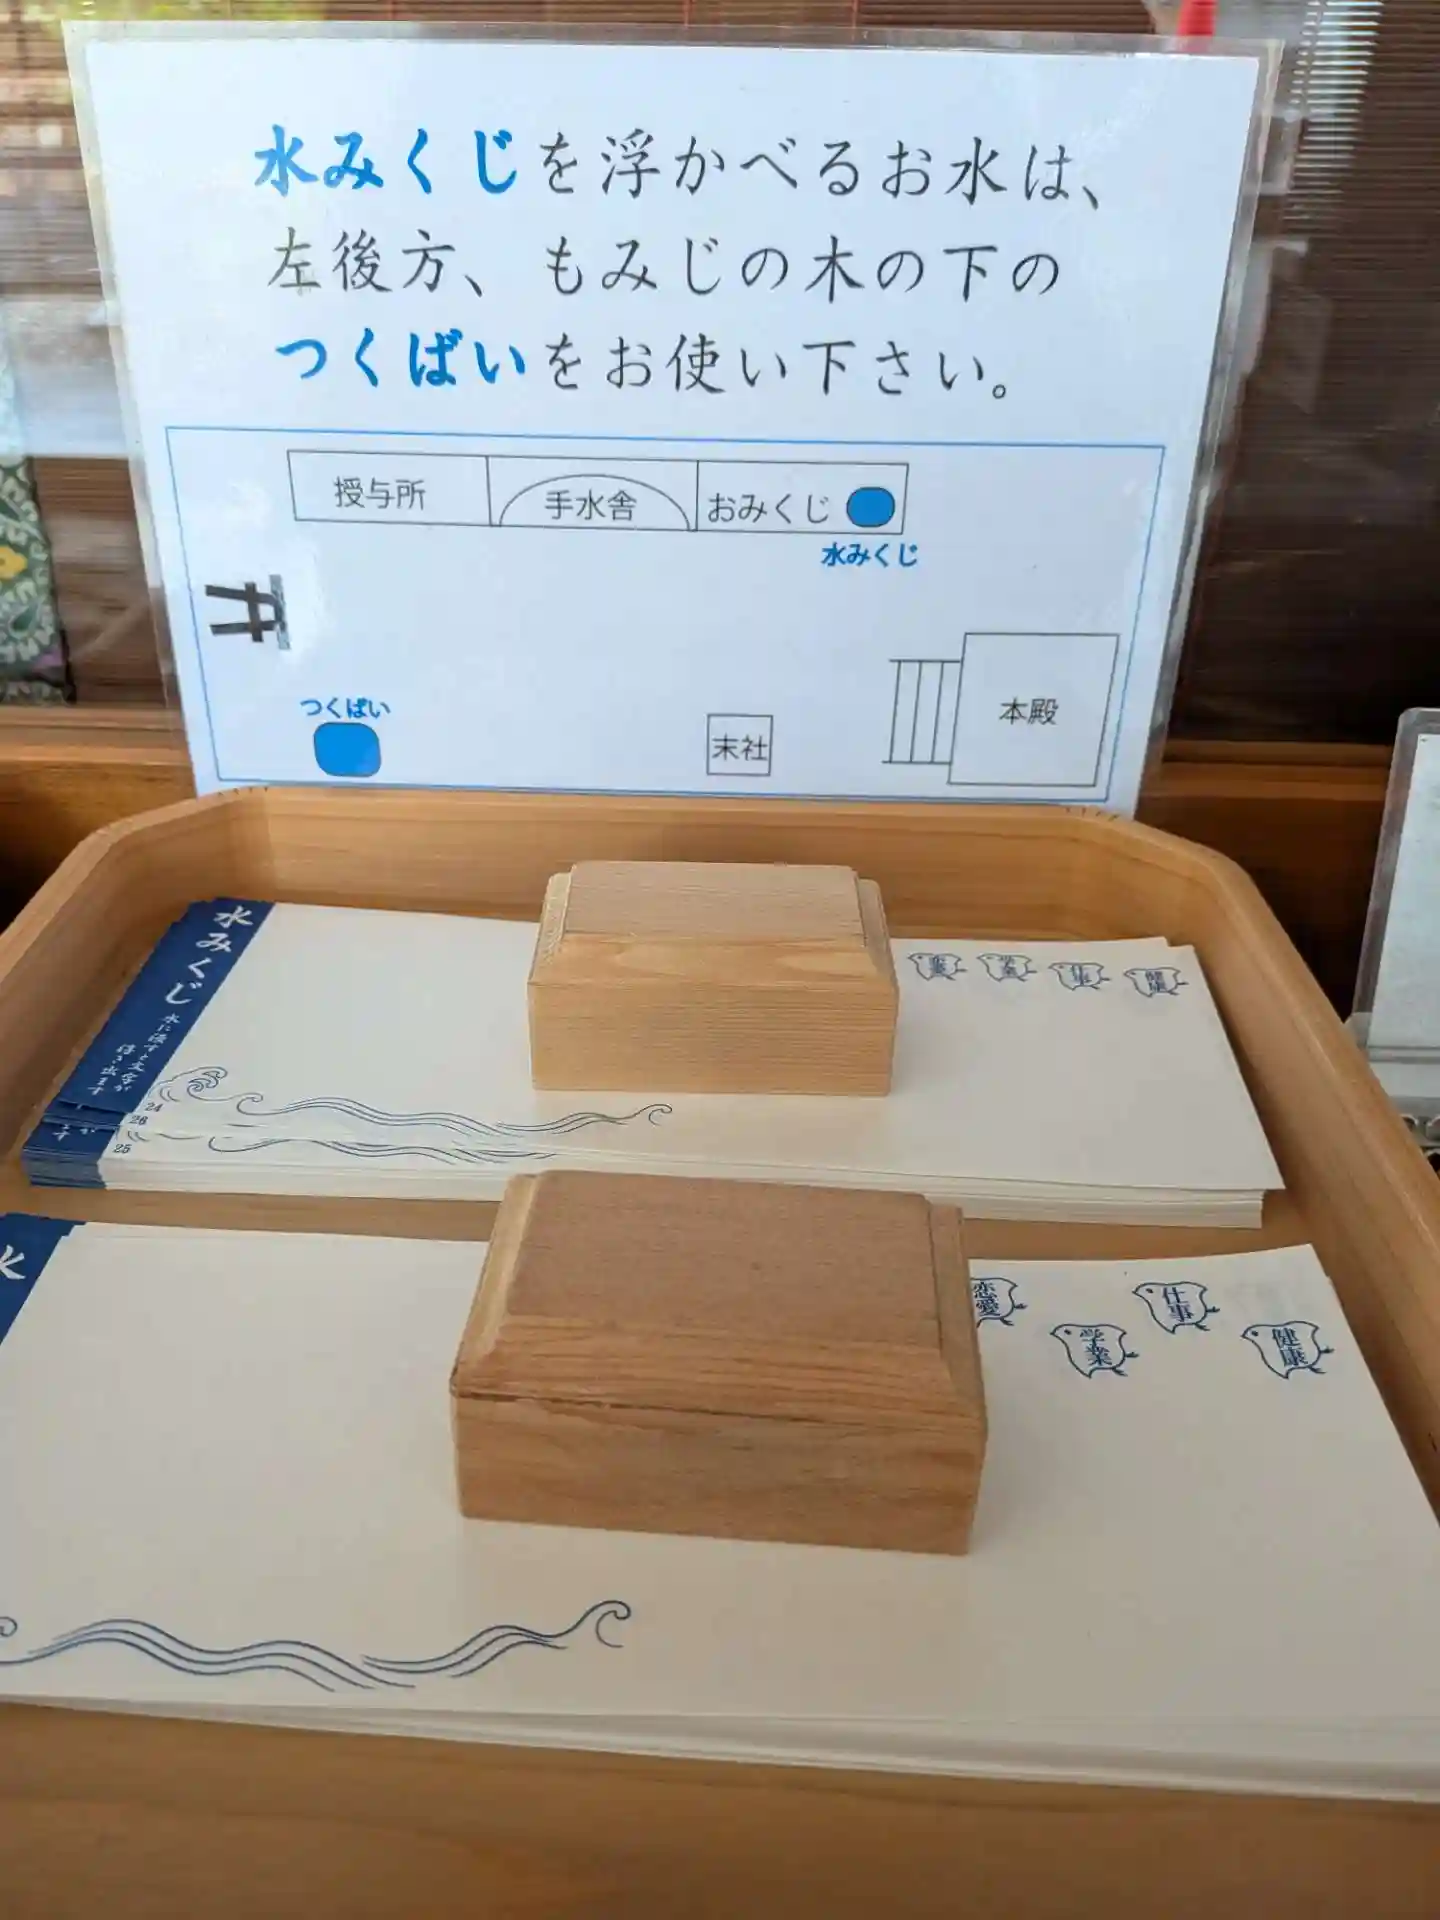 水みくじを浮かべるお水は、
左後方、もみじの木の下の
つくばいをお使い下さい。
授与所
手水舎
おみくじ
水みくじ
つくばい
末社
本殿
水みくじ
水に浸すと文字が
浮き出ます
恋愛
学業
仕事
健康
24
26
25
ます
が
水
恋愛
学業
仕事
健康